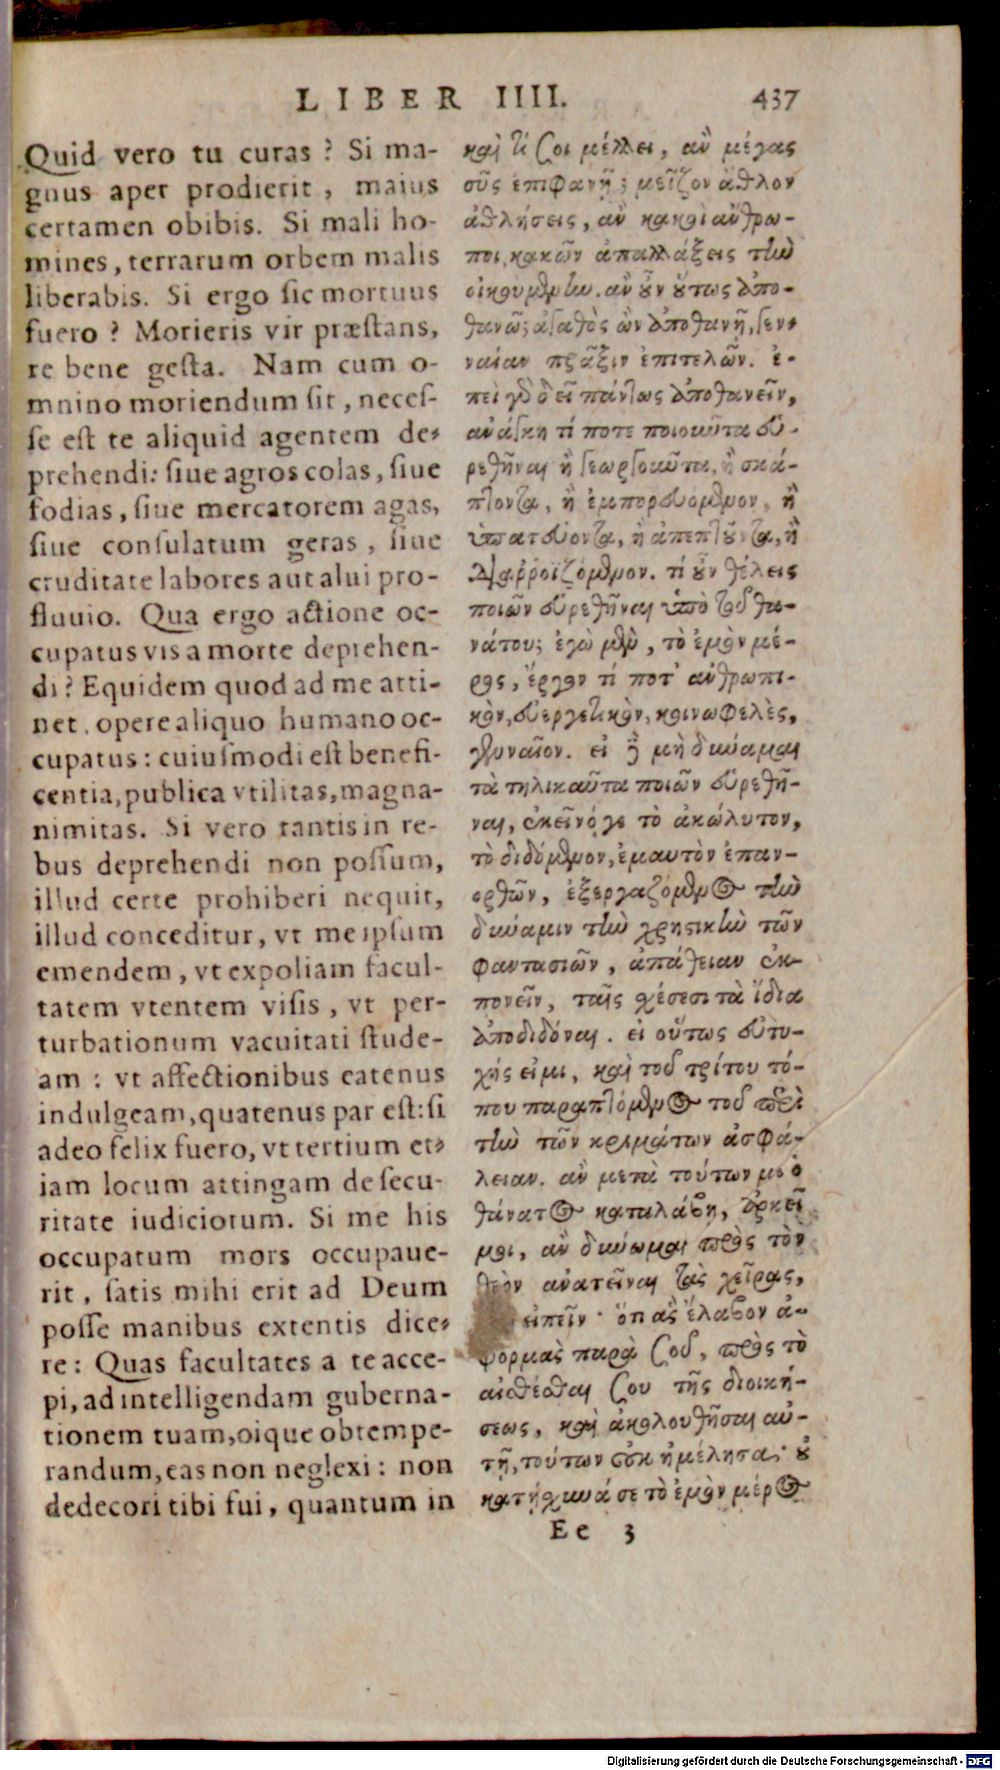 LIBER IIII. 437
Quid vero tu curas ? Si ma-
gnus aper prodierit, maius
certamen obibis. Si mali ho-
mines, terrarum orbem malis
liberabis. Si ergo sic mortuus
fuero ? Morieris vir præstans,
re bene gesta. Nam cum o-
mnino moriendum sit, neces-
se est te aliquid agentem de-
prehendi: siue agros colas, siue
fodias, siue mercatorem agas,
siue consulatum geras, siue
cruditate labores aut alui pro-
fluuio. Qua ergo actione oc-
cupatus vis a morte deprehen-
di ? Equidem quod ad me atti-
net, opere aliquo humano oc-
cupatus : cuiusmodi est benefi-
centia, publica vtilitas, magna-
nimitas. Si vero tantis in re-
bus deprehendi non possum,
illud certe prohiberi nequit,
illud conceditur, vt me ipsum
emendem, vt expoliam facul-
tatem vtentem visis, vt per-
turbationum vacuitati stude-
am : vt affectionibus eatenus
indulgeam, quatenus par est: si
adeo felix fuero, vt tertium et-
iam locum attingam de secu-
ritate iudiciorum. Si me his
occupatum mors occupaue-
rit, satis mihi erit ad Deum
posse manibus extentis dice-
re : Quas facultates a te acce-
pi, ad intelligendam guberna-
tionem tuam, eique obtempe-
randum, eas non neglexi : non
dedecori tibi fui, quantum in
καὶ τί σοι μέλλει, ἂν μέγας
σῦς ἐπιφανῇ; μεῖζον ἆθλον
ἀθλήσεις, ἂν κακοὶ ἄνθρω-
ποι, κακῶν ἀπαλλάξεις τὴν
οἰκουμένην. ἂν οὖν οὕτως ἀπο-
θανῶ; ἀγαθὸς ὢν ἀποθανῇ, γεν-
ναίαν πρᾶξιν ἐπιτελῶν. ἐ-
πεὶ γὰρ δεῖ πάντως ἀποθανεῖν,
ἀνάγκη τί ποτε ποιοῦντα εὑ-
ρεθῆναι ἢ γεωργοῦντα, ἢ σκά-
πτοντα, ἢ ἐμπορευόμενον, ἢ
ὑπατεύοντα, ἢ ἀπεπτοῦντα, ἢ
διαῤῥοϊζόμενον. τί οὖν θέλεις
ποιῶν εὑρεθῆναι ὑπὸ τοῦ θα-
νάτου; ἐγὼ μὲν, τὸ ἐμὸν μέ-
ρος, ἔργον τί ποτ' ἀνθρωπι-
κὸν, εὐεργετικὸν, κοινωφελὲς,
γενναῖον. εἰ δὲ μὴ δύναμαι
τὰ τηλικαῦτα ποιῶν εὑρεθῆ-
ναι, ἐκεῖνό γε τὸ ἀκώλυτον,
τὸ διδόμενον, ἐμαυτὸν ἐπαν-
ορθῶν, ἐξεργαζόμενος τὴν
δύναμιν τὴν χρηστικὴν τῶν
φαντασιῶν, ἀπάθειαν ἐκ-
πονεῖν, ταῖς σχέσεσι τὰ ἴδια
ἀποδιδόναι. εἰ οὕτως εὐτυ-
χής εἰμι, καὶ τοῦ τρίτου τό-
που παραπτόμενος τοῦ περὶ
τὴν τῶν κριμάτων ἀσφά-
λειαν. ἂν μετὰ τούτων με ὁ
θάνατος καταλάβῃ, ἀρκεῖ
μοι, ἂν δύνωμαι πρὸς τὸν
θεὸν ἀνατεῖναι τὰς χεῖρας,
εἰπεῖν· ὅτι ἃς ἔλαβον ἀ-
φορμὰς παρὰ σοῦ, πρὸς τὸ
αἰσθέσθαι σου τῆς διοική-
σεως, καὶ ἀκολουθῆσαι αὐ-
τῇ, τούτων οὐκ ἠμέλησα· οὐ
κατῄσχυνά σε τὸ ἐμὸν μέρος
Ee 3
Digitalisierung gefördert durch die Deutsche Forschungsgemeinschaft - DFG